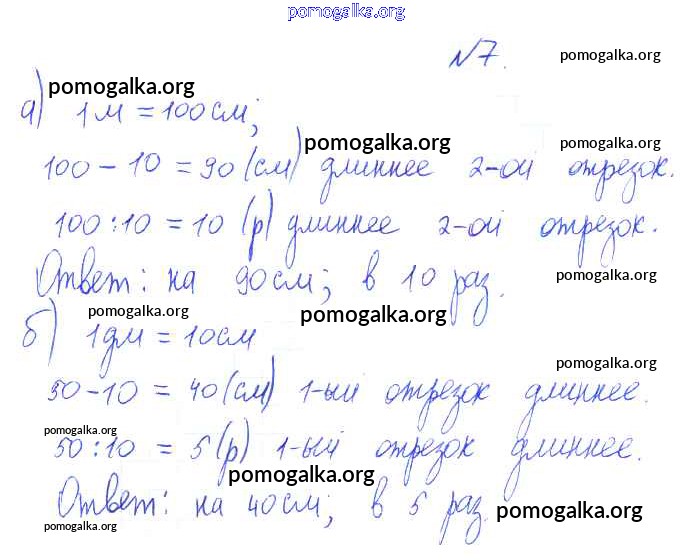 pomogalka.org
№7. pomogalka.org
pomogalka.org
а) 1м = 100см;
pomogalka.org pomogalka.org
100 - 10 = 90 (см) длиннее 2-ой отрезок.
100 : 10 = 10 (р) длиннее 2-ой отрезок.
pomogalka.org
Ответ: на 90см; в 10 раз.
pomogalka.org pomogalka.org pomogalka.org
б) 1дм = 10см
pomogalka.org
50-10 = 40 (см) 1-ый отрезок длиннее.
pomogalka.org pomogalka.org
50 : 10 = 5 (р) 1-ый отрезок длиннее.
pomogalka.org
Ответ: на 40см; в 5 раз.
pomogalka.org pomogalka.org